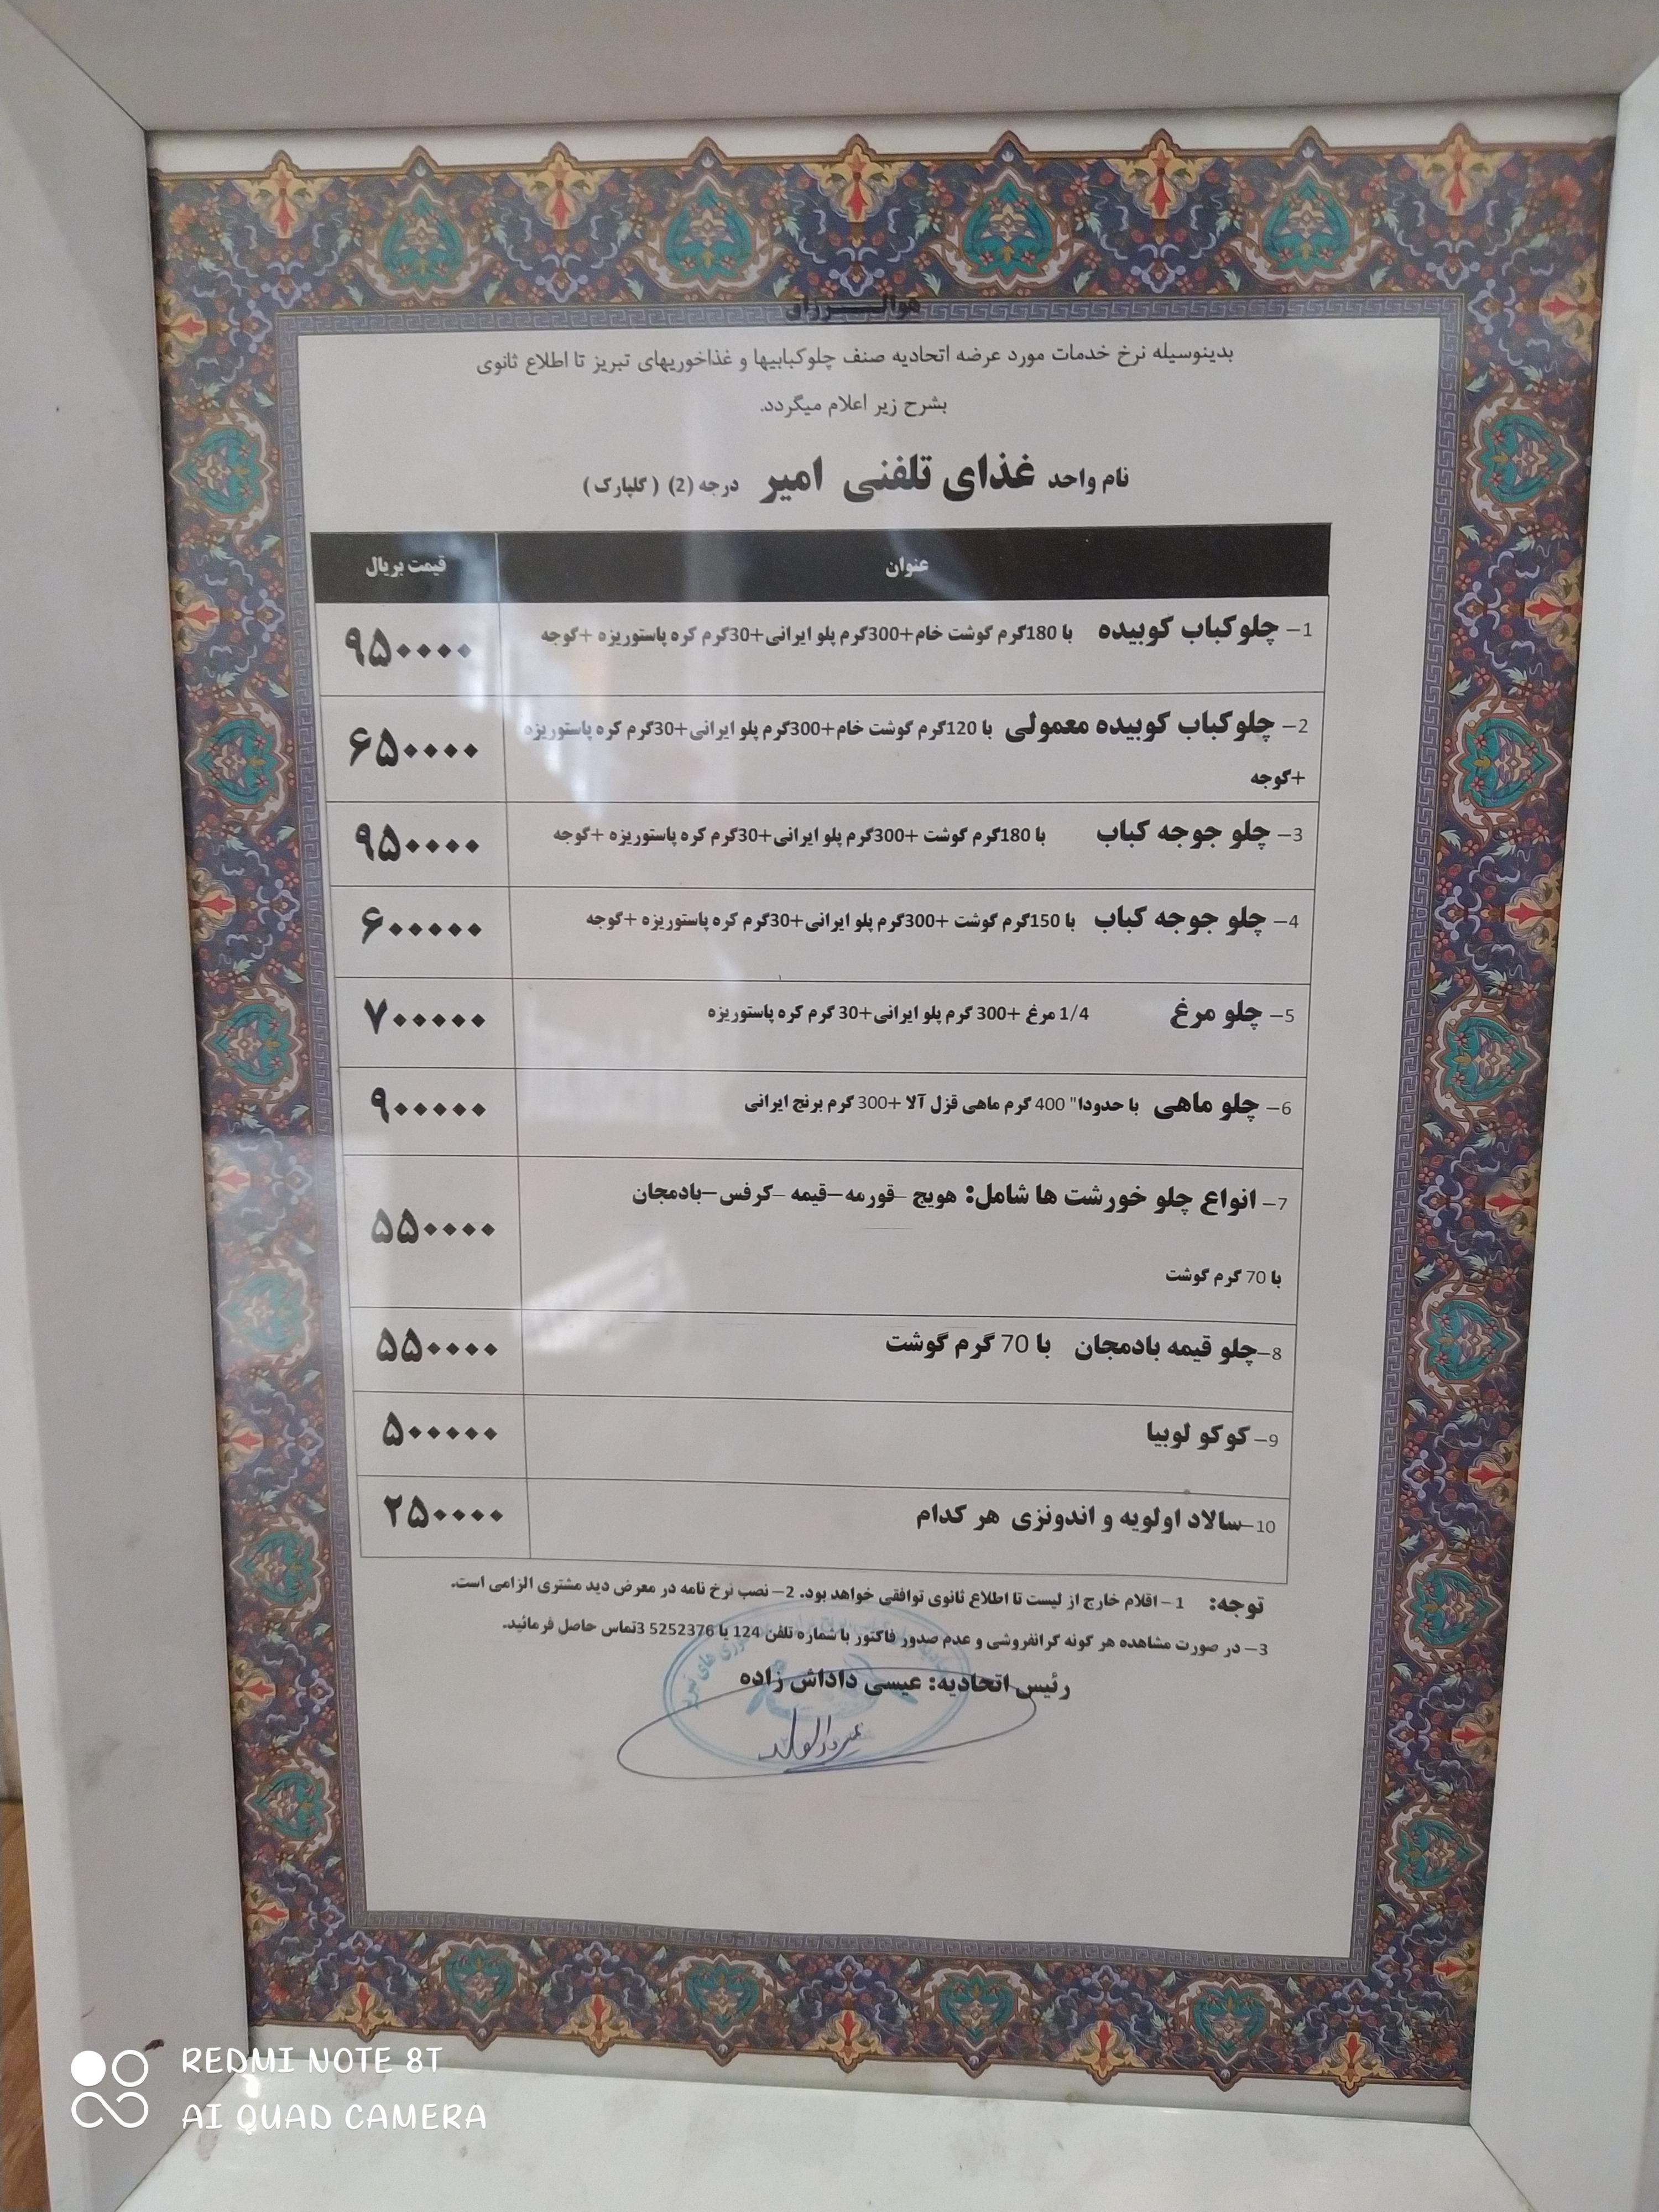 هوالـــرزاق
بدینوسیله نرخ خدمات مورد عرضه اتحادیه صنف چلوکبابیها و غذاخوریهای تبریز تا اطلاع ثانوی
بشرح زیر اعلام میگردد.
نام واحد غذای تلفنی امیر درجه (2) ( گلپارک )
عنوان قیمت بریال
1– چلوکباب کوبیده با 180گرم گوشت خام+300گرم پلو ایرانی+30گرم کره پاستوریزه +گوجه ۹۵۰۰۰۰
2– چلوکباب کوبیده معمولی با 120گرم گوشت خام+300گرم پلو ایرانی+30گرم کره پاستوریزه ۶۵۰۰۰۰
+گوجه
3– چلو جوجه کباب با 180گرم گوشت +300گرم پلو ایرانی+30گرم کره پاستوریزه +گوجه ۹۵۰۰۰۰
4– چلو جوجه کباب با 150گرم گوشت +300گرم پلو ایرانی+30گرم کره پاستوریزه +گوجه ۶۰۰۰۰۰
5– چلو مرغ 1/4 مرغ +300 گرم پلو ایرانی+30 گرم کره پاستوریزه ۷۰۰۰۰۰
6– چلو ماهی با حدودا" 400 گرم ماهی قزل آلا +300 گرم برنج ایرانی ۹۰۰۰۰۰
7– انواع چلو خورشت ها شامل: هویج –قورمه–قیمه –کرفس–بادمجان ۵۵۰۰۰۰
با 70 گرم گوشت
8–چلو قیمه بادمجان با 70 گرم گوشت ۵۵۰۰۰۰
9– کوکو لوبیا ۵۰۰۰۰۰
10–سالاد اولویه و اندونزی هر کدام ۲۵۰۰۰۰
توجه: 1 – اقلام خارج از لیست تا اطلاع ثانوی توافقی خواهد بود. 2– نصب نرخ نامه در معرض دید مشتری الزامی است.
3– در صورت مشاهده هر گونه گرانفروشی و عدم صدور فاکتور با شماره تلفن 124 یا 5252376 3تماس حاصل فرمائید.
رئیس اتحادیه: عیسی داداش زاده
REDMI NOTE 8T
AI QUAD CAMERA